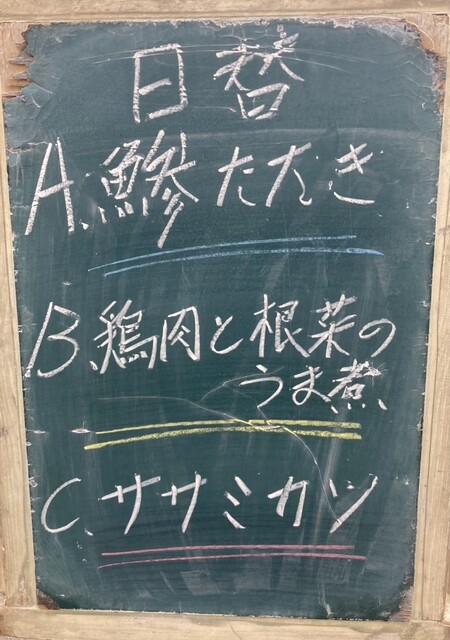 日替
A.鯵たたき
B.鶏肉と根菜の
うま煮
C.ササミカツ